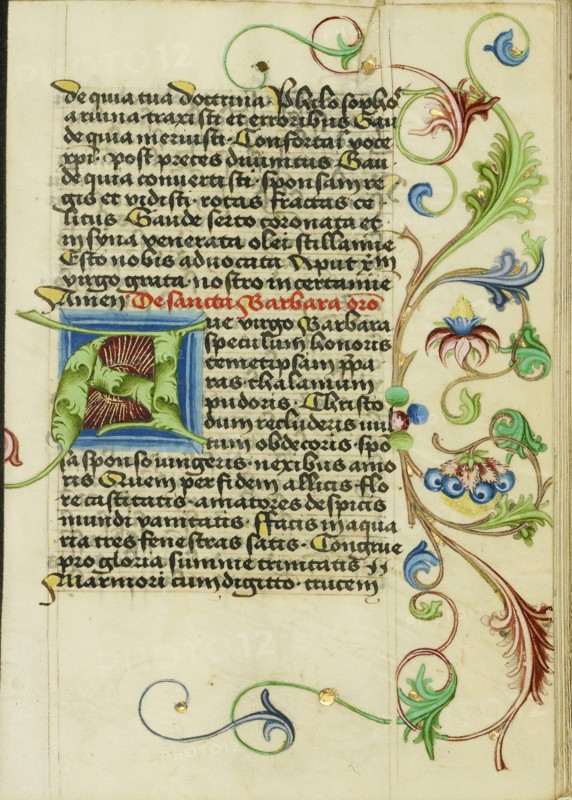 de quia tua doctrina. Philosopho
a ruina traxisti et erroribus Gau
de quia meruisti. Confortari voce
xpi. post preces diuinitus Gau
de quia conuertisti. sponsam re
gis et vidisti. rotas fractas ce-
litus Gaude serto coronata et
in syna venerata olei stillamine
Esto nobis aduocata Aput xpm
virgo grata. nostro in certamine
Amen De sancta Barbara oro
Aue virgo Barbara
speculum honoris
temetipsam ppa
ras. thalamum
pudoris. Christo
dum recluderis
tum obdecoris. spo
sa sponso iungeris. nexibus amo
ris Quem per fidem allicis. flo
re castitatis. amatores despicis
mundi vanitatis. Facis in aqua
ria tres fenestras satis. Congrue
pro gloria summe trinitatis
Marmori cum digitto. crucem